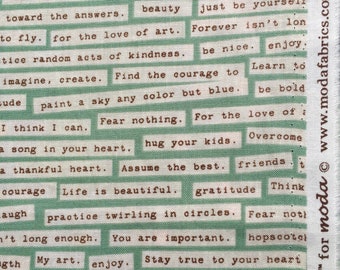 toward the answers. beauty just be yourself
to fly. for the love of art. Forever isn't lon
tice random acts of kindness. be nice. enjoy
imagine, create. Find the courage to Learn to
tude paint a sky any color but blue. be bold
I think I can. Fear nothing. For the love of a
a song in your heart. hug your kids. Overcome
a thankful heart. Assume the best. friends.
courage Life is beautiful. gratitude Think
augh practice twirling in circles. Fear noth
n't long enough. You are important. hopscotch
gth My art. enjoy. Stay true to your heart
for moda © www.modafabrics.com